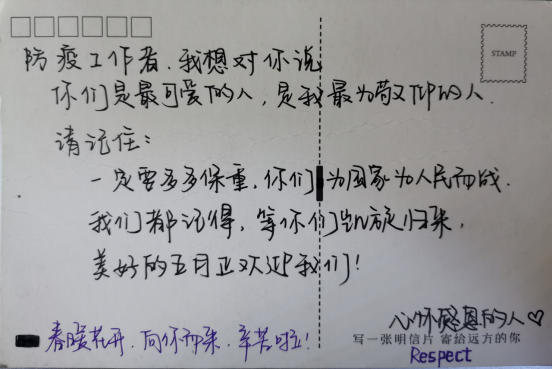 STAMP
防疫工作者.我想对你说
你们是最可爱的人,是我最为敬佩的人.
请记住:
一定要多多保重,你们为国家为人民而战.
我们都记得,等你们凯旋归来,
美好的五月正欢迎我们!
心怀感恩的人♡
春暖花开.向你而来.辛苦啦!
写一张明信片 寄给远方的你
Respect